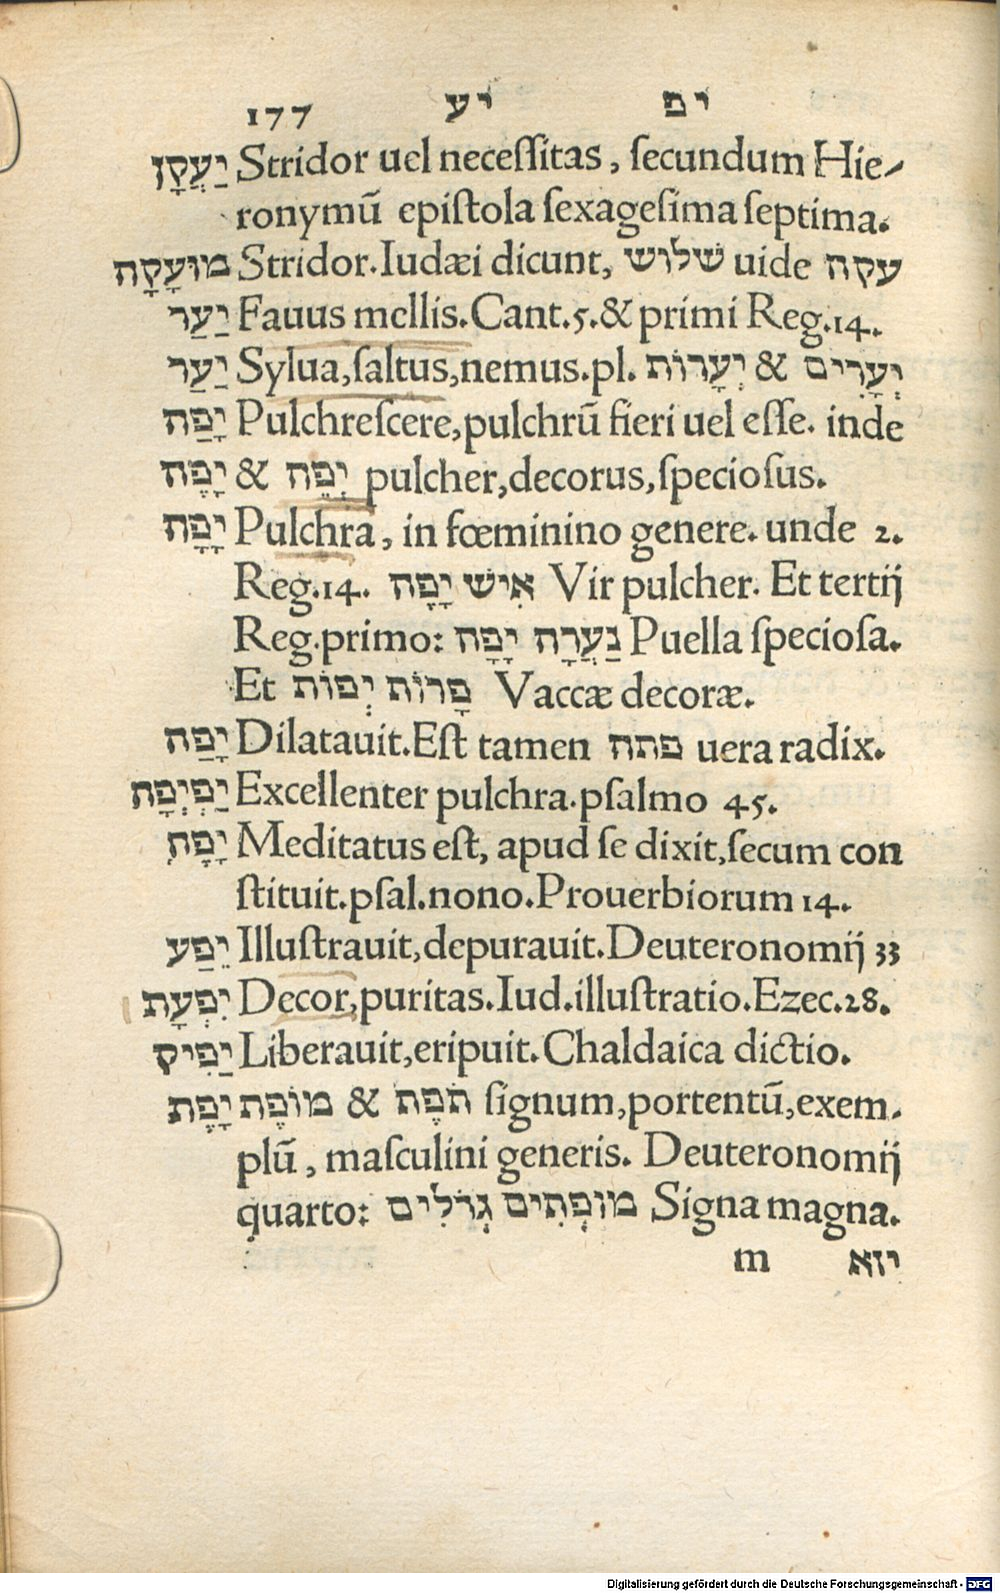 177 יע יפ
יַעֲקָן Stridor uel necessitas, secundum Hie-
ronymū epistola sexagesima septima.
מוּעָקָה Stridor. Iudæi dicunt, שלוש uide עקה
יַעַר Fauus mellis. Cant. 5. & primi Reg. 14.
יַעַר Sylua, saltus, nemus. pl. יְעָרוֹת & יְעָרִים
יָפַה Pulchrescere, pulchrū fieri uel esse. inde
יָפֶה & יְפֵה pulcher, decorus, speciosus.
יָפָה Pulchra, in fœminino genere. unde 2.
Reg. 14. אִישׁ יָפֶה Vir pulcher. Et tertij
Reg. primo: נַעֲרָה יָפָה Puella speciosa.
Et פָרוֹת יְפוֹת Vaccæ decoræ.
יָפַח Dilatauit. Est tamen פתח uera radix.
יַפְיְפָה Excellenter pulchra. psalmo 45.
יָפֶח Meditatus est, apud se dixit, secum con
stituit. psal. nono. Prouerbiorum 14.
יֵפַע Illustrauit, depurauit. Deuteronomij 33
יִפְעָת Decor, puritas. Iud. illustratio. Ezec. 28.
יַפִיק Liberauit, eripuit. Chaldaica dictio.
יָפֶת מוֹפֶת & תֹפֶת signum, portentū, exem-
plū, masculini generis. Deuteronomij
quarto: מוֹפְתִים גְדֹלִים Signa magna.
m יזא
Digitalisierung gefördert durch die Deutsche Forschungsgemeinschaft - DFG